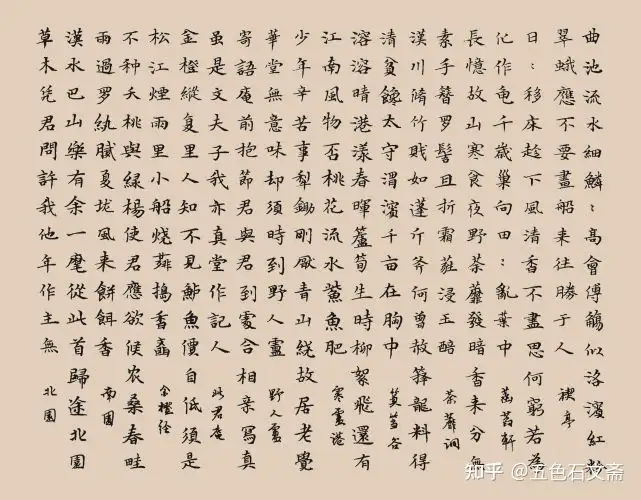 曲池流水細鱗〻高會傳觴似洛濱紅粉
翠蛾應不要畫船来往勝于人 禊亭
日〻移床趁下風清香不盡思何窮若為
化作龟千歲巢向田〻亂葉中 菡萏軒
長憶故山寒食夜野荼蘼發暗香来分無
素手簪罗髻且折霜蕤浸玉醅 荼蘼洞
漢川脩竹賎如蓬斤斧何曾赦籜龍料得
清貧饞太守渭濱千亩在胸中 篔簹谷
溶溶晴港漾春暉蘆筍生時柳絮飛還有
江南風物否桃花流水鮆魚肥 寒蘆港
少年辛苦事犁鋤剛厭青山繞故居老覺
華堂無意味却須時到野人廬 野人廬
寄語庵前抱節君與君到處合相亲寫真
虽是文夫子我亦真堂作記人 此君庵
金橙縱复里人知不見鲈魚價自低須是
松江煙雨里小船燒薤搗香齏 金橙徑
不种夭桃與緑楊使君應欲候农桑春畦
雨過罗紈膩夏垅風来餅餌香 南園
漢水巴山樂有余一麾從此首歸途北園
草木凭君問許我他年作主無 北園
知乎 @五色石文斋